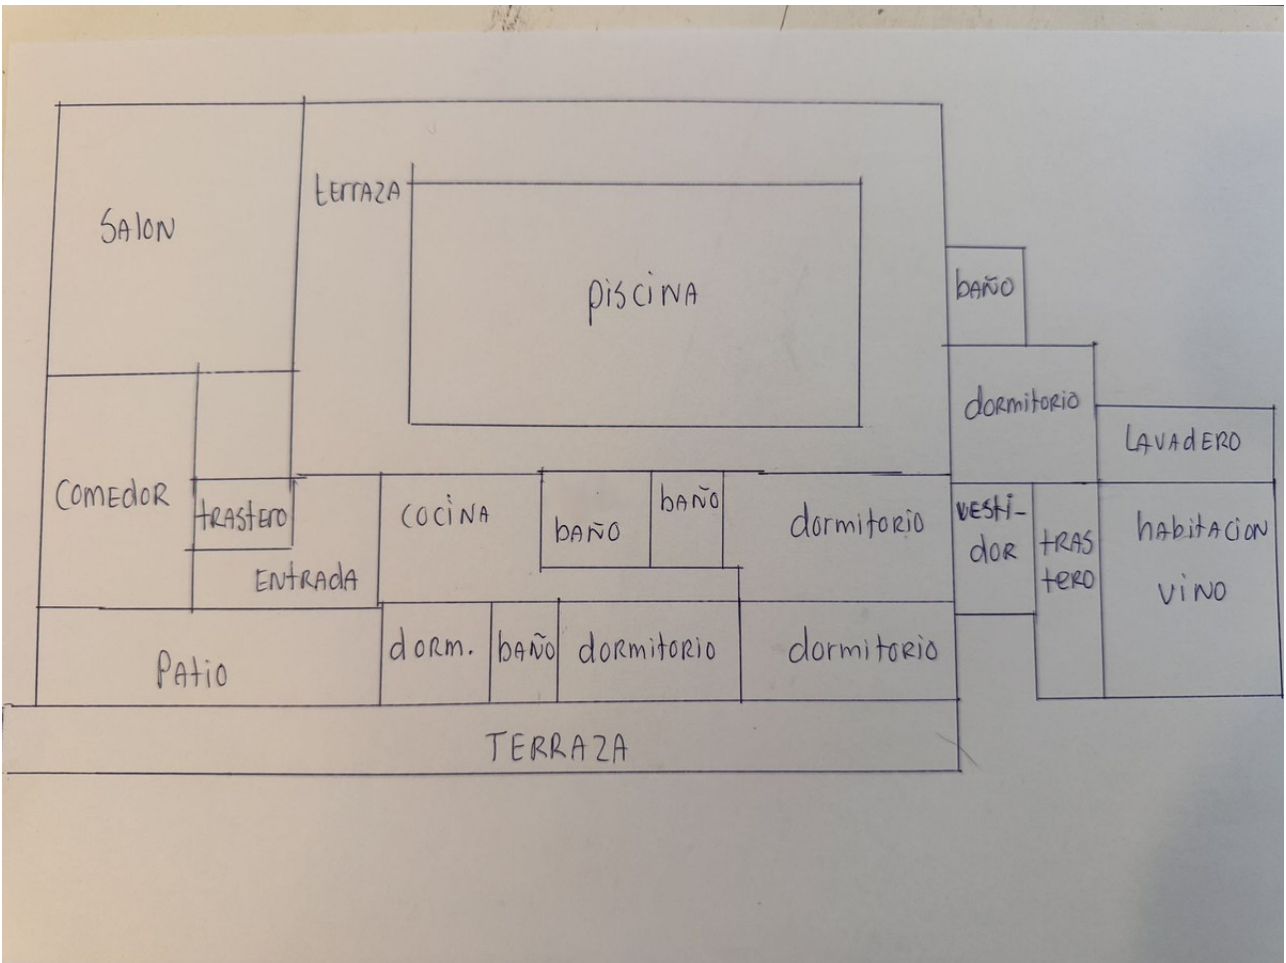 SALON
tErrAZA
PiSCiNA
bAÑO
dormitorio
LAVAdERO
COMEdOR
tRAStERO
ENtRAdA
COCiNA
bAÑO
bAÑO
dormitorio
VESti-
dOR
tRAS
tERO
hAbitACiON
ViNO
PAtiO
dORM.
bAÑO
dORMitORiO
dormitoRiO
TERRAZA